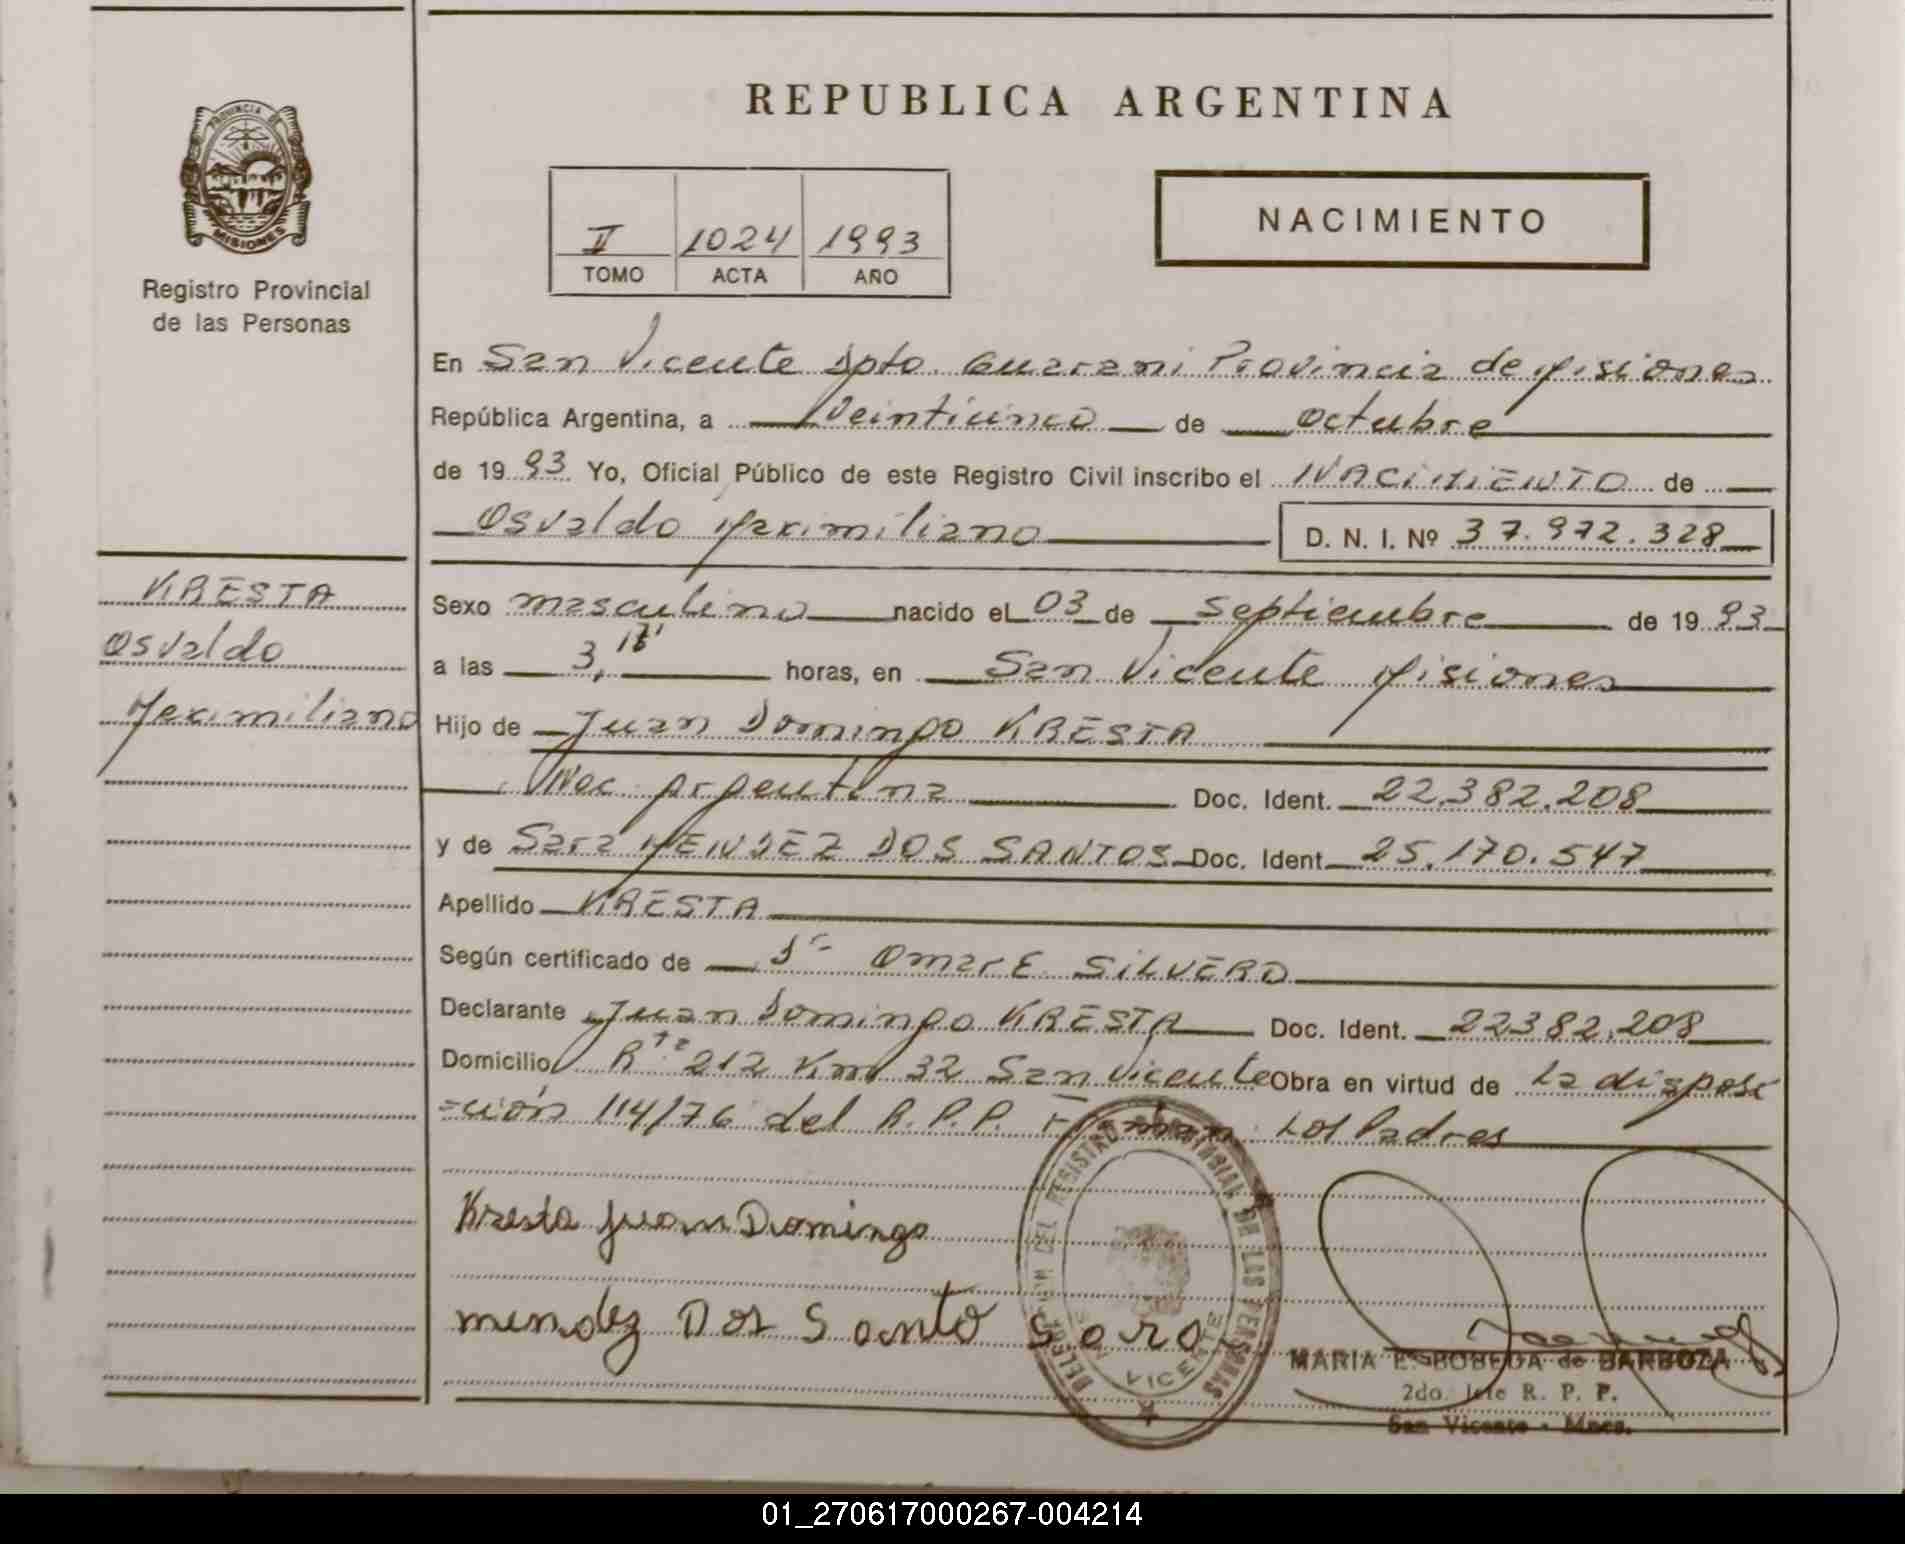 PROVINCIA DE
MISIONES
Registro Provincial
de las Personas
REPUBLICA ARGENTINA
II 1024 1993
TOMO ACTA AÑO
NACIMIENTO
En San Vicente Dpto. Guarani Provincia de Misiones
República Argentina, a Veinticinco de Octubre
de 1993 Yo, Oficial Público de este Registro Civil inscribo el NACIMIENTO de
Osvaldo Maximiliano D. N. I. Nº 37.972.328
KRESTA
Osvaldo
Maximiliano
Sexo masculino nacido el 03 de Septiembre de 1993
a las 3, horas, en San Vicente Misiones
Hijo de Juan Domingo KRESTA
Nac. Argentina Doc. Ident. 22.382.208
y de Sara MENDEZ DOS SANTOS Doc. Ident. 25.170.547
Apellido KRESTA
Según certificado de Dr. Omar E. SILVERO
Declarante Juan Domingo KRESTA Doc. Ident. 22382.208
Domicilio Rta 212 Km 32 San Vicente Obra en virtud de La disposi
=ción 114/76 del R.P.P. Los Padres
Kresta Juan Domingo
mendez Dos Santo Sara
DELEGACION DEL REGISTRO PROVINCIAL DE LAS PERSONAS
VICENTE
MARIA E. BOBEDA de BARBOZA
2do. Jefe R. P. P.
San Vicente - Mnes.
01_270617000267-004214